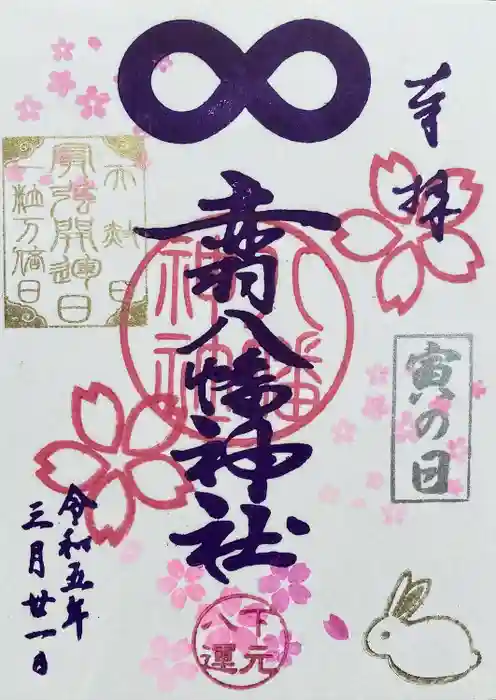 奉拝
寅の日
八幡神社
八幡神社
下元
八運
天赦日
最強開運日
一粒万倍日
令和五年
三月廿一日